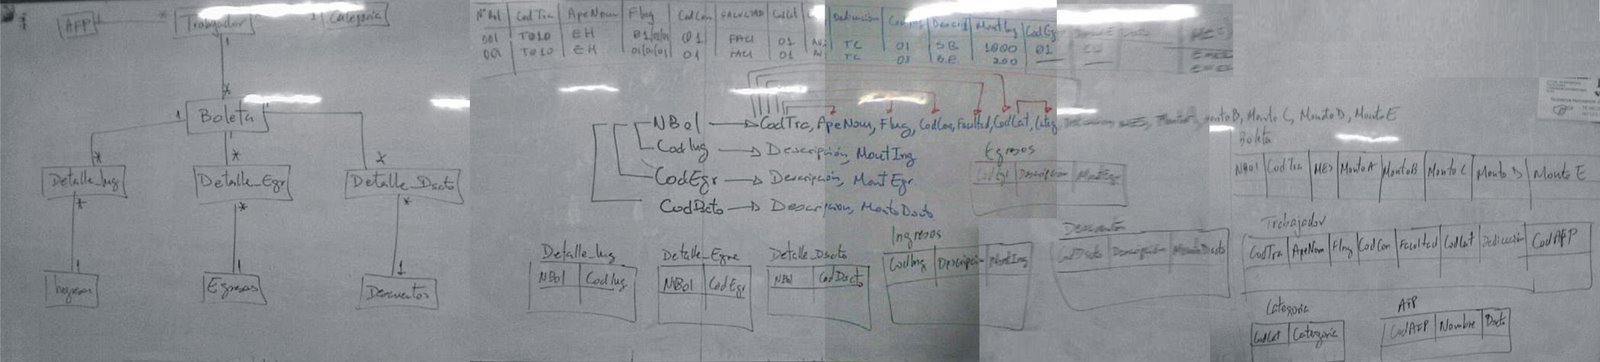 AFP Trabajador Categoria
1 * 1
1
*
1 Boleta 1
* * *
Detalle_Ing Detalle_Egr Detalle_Dscto
* * *
1 1 1
Ingresos Egresos Descuentos
NºBol CodTra ApeNom FIng CodCon FACULTAD CodCat Dedicación Descrip MontIng CodEg
001 T010 EH 01/01/01 01 FACI 01 TC 01 S.B 1000 01
001 T010 EH 01/01/01 01 FACI 01 TC 03 B.E 200
NBol CodTra, ApeNom, FIng, CodCon, Facultad, CodCat, Categ MontoB, Monto C, Monto D, Monto E
CodIng Descripción, MontIng
CodEgr Descripción, MontEgr
CodDscto Descripcion, MontoDscto
Egresos
CodEgr Descripcion MontEgr
Boleta
NBol CodTra MES MontoA MontoB Monto C Monto D Monto E
Detalle_Ing
NBol CodIng
Detalle_Egre
NBol CodEgr
Detalle_Dscto
NBol CodDscto
Ingresos
CodIng Descripción MontIng
Descuento
CodDscto Descripción MontoDscto
Trabajador
CodTra ApeNom FIng CodCon Facultad CodCat Dedicación CodAFP
Categoria
CodCat Categoria
AFP
CodAFP Nombre Dscto